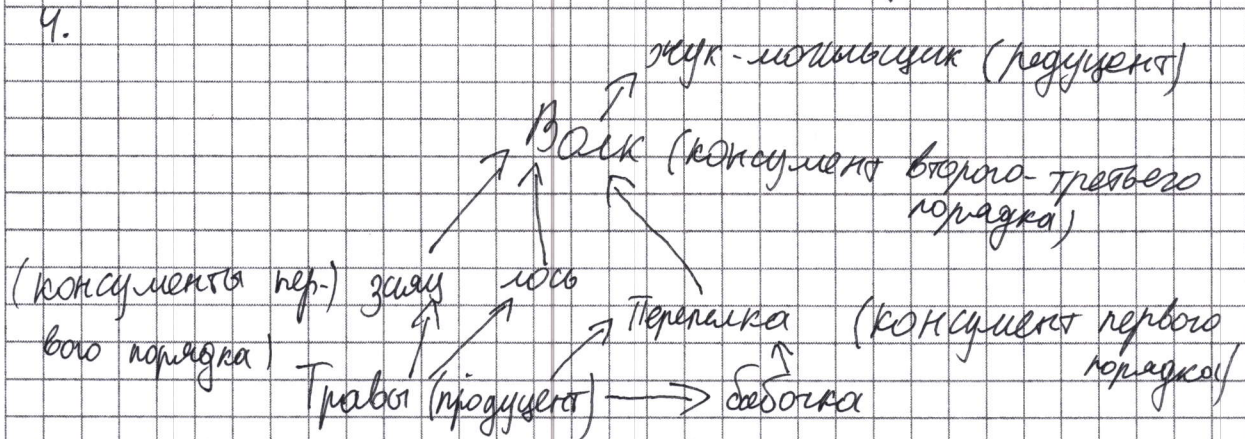 4.
жук-могильщик (редуцент)
Волк (консумент второго-третьего
порядка)
(консументы пер-) заяц лось
Перепелка (консумент первого
вого порядка)
порядка)
Травы (продуцент) бабочка